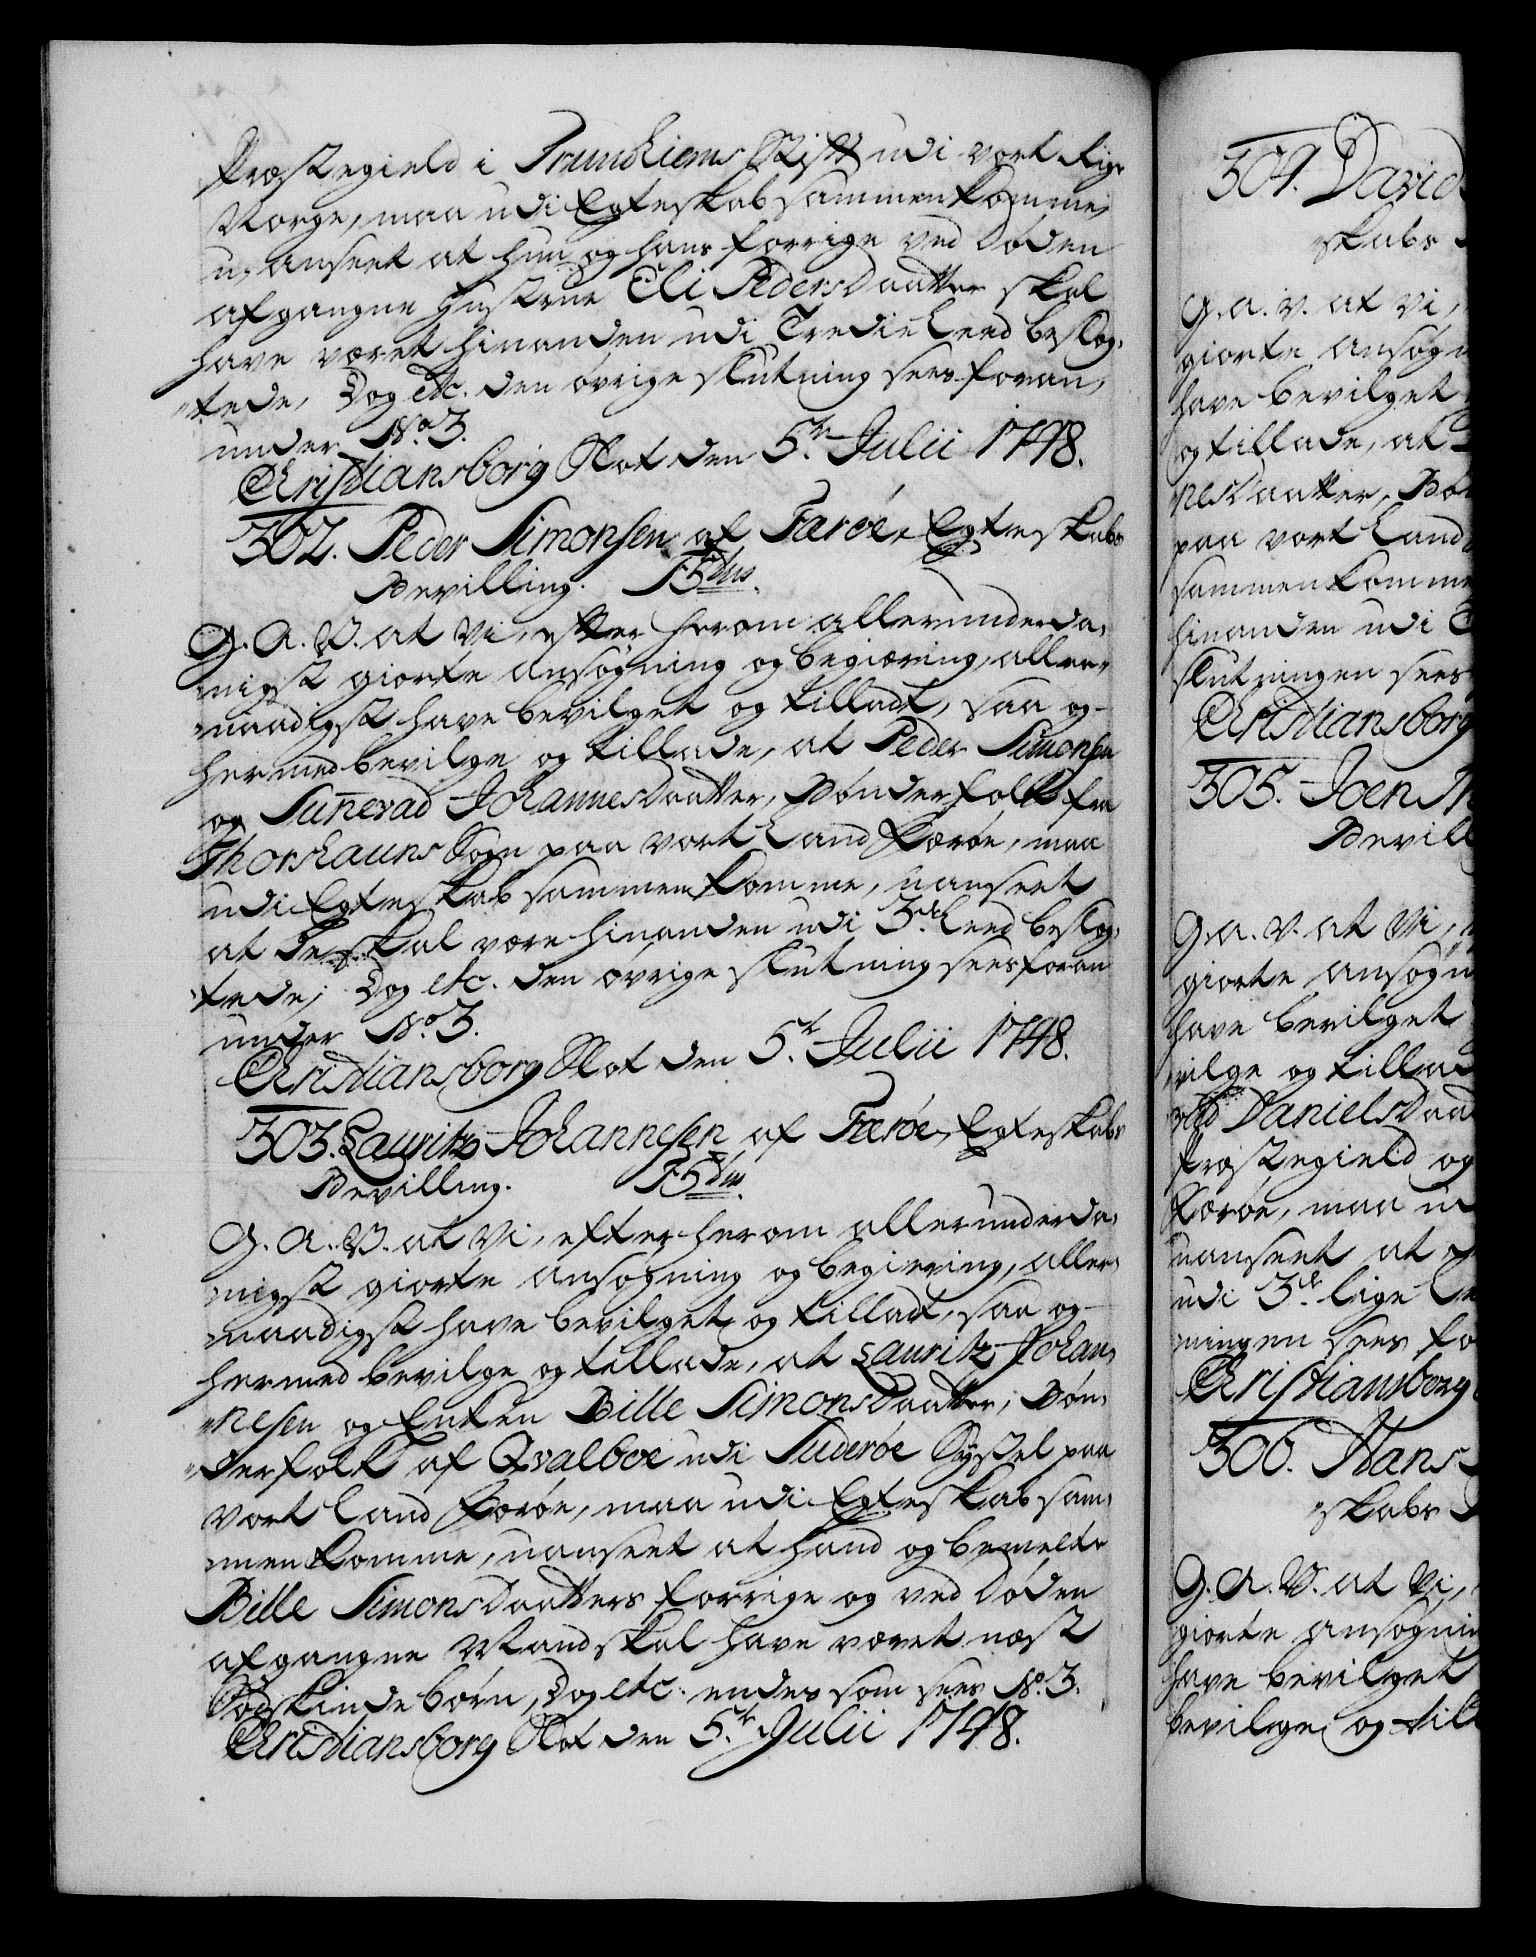 Præstegield i Trundhiems Stift udi vort Rige
Norge, maa udi Egteskab sammenkomme,
u,anseet at hun og hans forrige ved Døden
afgangne Hustrue Eli PedersDaatter skal
have været hinanden udi Tredie Leed beslæg,
„tede, Dog etc. den øvrige slutning sees foran,
under No. 3.
Christiansborg Slot den 5te Julii 1748.
302. Peder Simonsen af Færöe, Egteskabs
Bevilling.
G. A. V. at Vi, efter herom allerunderda,
nigst giorte ansøgning og begiæring, aller,
naadigst have bevilget og tilladt, saa og
hermed bevilge og tillade, at Peder Simonsen
og Sunevad JohannesDaatter, Bønderfolk fra
Thorshauns Sogn paa vort Land Færøe, maa
udi Egteskab sammenkomme, uanseet
at de skal være hinanden udi 3de Leed beslæg,
„tede; Dog etc. den øvrige slutning sees foran
under No. 3.
Christiansborg Slot den 5te Julii 1748.
303. Lauritz Johannesen af Færöe, Egteskabs
Bevilling.
G. A. V. at Vi, efter herom allerunderda,
nigst giorte ansøgning og begiering, aller,
naadigst have bevilget og tilladt, saa og
hermed bevilge og tillade, at Lauritz Johan,
„nesen og Enken Bille SimonsDaatter, Bøn,
„derfolk af Qvalboe udi Suderöe Syssel paa
vort Land Færøe, maa udi Egteskab sam,
menkomme, uanseet at hand og bemelte
Bille SimonsDaatters forrige og ved Døden
afgangne Mand skal have været næst
Sødskindebørn, Dog etc. endes som sees No. 3.
Christiansborg Slot den 5te Julii 1748.
304. David
„skabs
G. a. v. at Vi,
giorte ansøgn
have bevilget
og tillade, at
nesDaatter, Bøn
paa vort Land
sammenkomme
hinanden udi
slutningen sees
Christiansborg
305. Joen
Bevill
G. a. v. at Vi,
giorte ansøgn
have bevilget
vilge og tillad
DanielsDaa
Præstegield og
Færøe, maa ud
uanseet at
udi 3de lige
ningen sees fo
Christiansborg
306. Hans
„skabs
G. A. V. at Vi,
giorte ansøgnin
have bevilget
bevilge og till